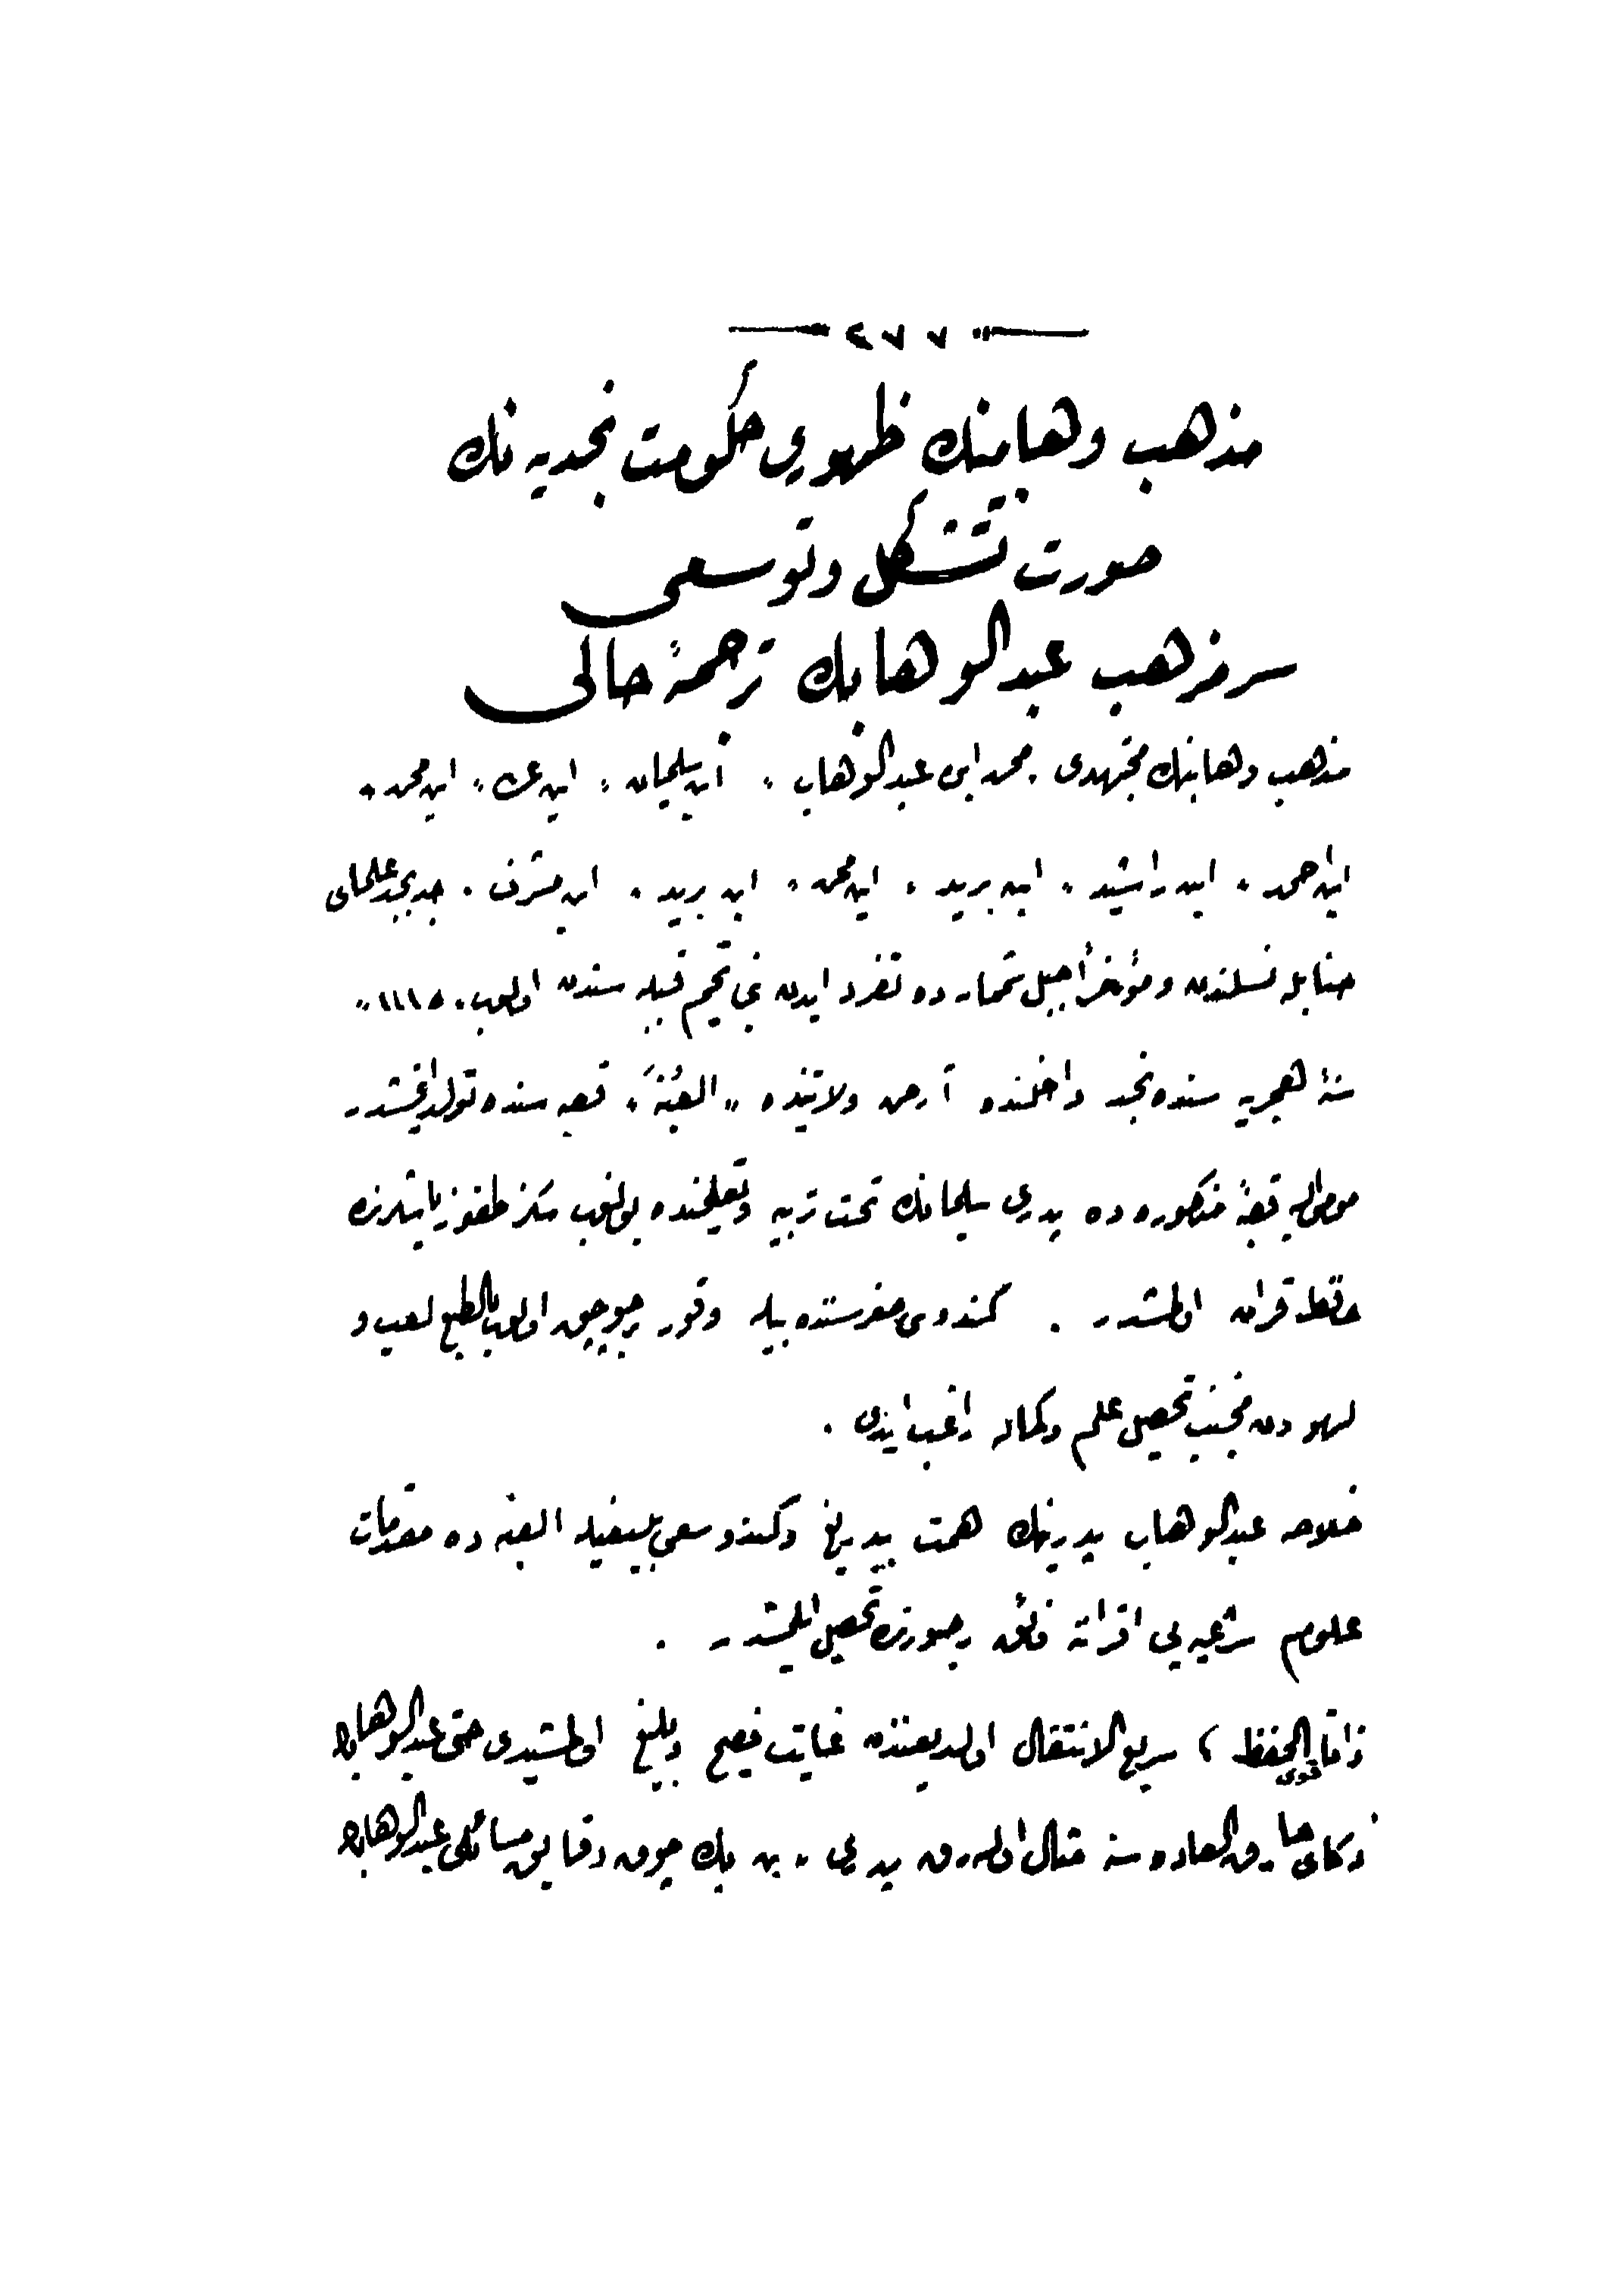 ٢٧٧
مذهب وهابينك ظهوری حكومت نجديه نك
صورت تشكل وتوسعی
سر مذهب عبدالوهابك ترجمۀ حالی
مذهب وهابينك مجتهدی . محمد ابن عبدالوهاب ، ابن سليمان ، ابن علی ، ابن محمد ،
ابن احمد ، ابن راشيد ، ابن بريد ، ابن محمد ، ابن بريد ، ابن مشرف . جد بجد علمای
حنابله نسلندن ومؤخراً جبل شمارده تفرد ايدن بنی تميم قبيله سندن اولوب ، ١١١٥ ،
سنۀ هجريه سنده نجد داخلنده آرض ولايتنده " العينه " قصبه سنده تولد ايتمشدر
مومی اليه قصبۀ مذكوره ده پدری سليمانك تحت تربيه وتعليمنده بولنوب سكز طقوز ياشلرنده
حافظ قران اولمشدر . كندوسی صغر سننده بيله وقور بر چوجق اولوب بالطبع لعب و
لهودن مجتنب تحصيل علم وكماله راغب ايدی .
خلاصه عبدالوهاب پدرينك همت بيدريغ وكندو سعی بليغيله العينه ده مقدمات
علوم شرعيه يی اقرانه فائق بر صورتده تحصيل ايلمشدر .
ذاتاً قوی الحفظ ، سريع الانتقال اولديغندن غايت فصيح وبليغ اولمشيدی حتی عبدالوهابك
ذكای خارق العاده سنه مثال اوله رق پدری ، بن پك چوق دقايق مسائلی عبدالوهابدن